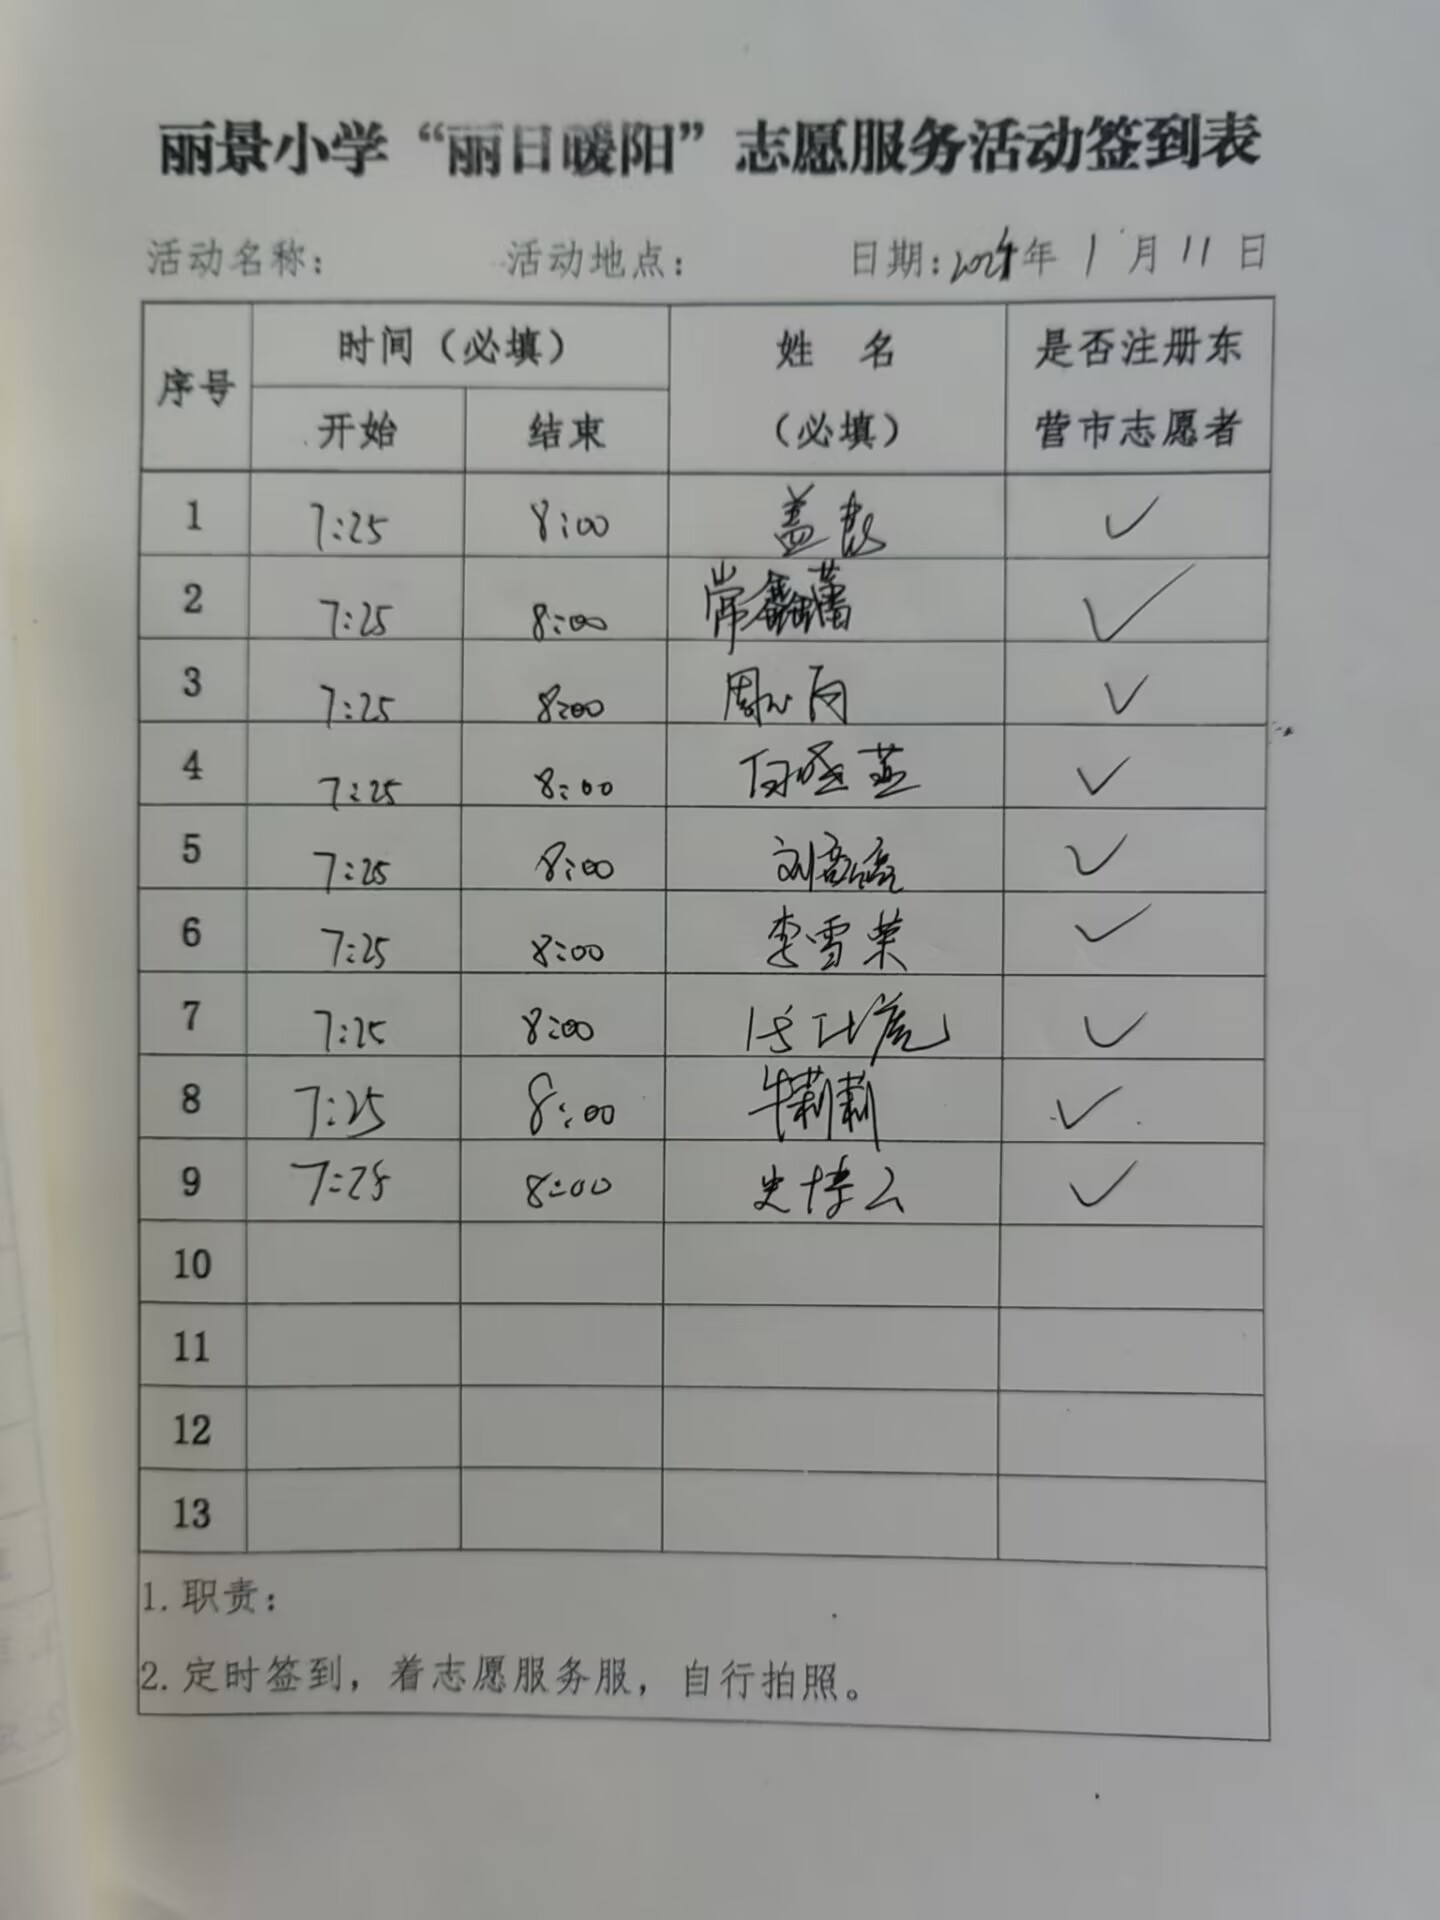 丽景小学“丽日暖阳”志愿服务活动签到表
活动名称： 活动地点： 日期：2024年 1 月 11 日
序号 时间（必填） 姓 名（必填） 是否注册东营市志愿者
开始 结束
1 7:25 8:00 盖 ✓
2 7:25 8:00 常鑫蕾 ✓
3 7:25 8:00 周心 ✓
4 7:25 8:00 白晓燕 ✓
5 7:25 8:00 刘 ✓
6 7:25 8:00 李雪荣 ✓
7 7:25 8:00 ✓
8 7:25 8:00 牛莉莉 ✓
9 7:25 8:00 史博云 ✓
10
11
12
13
1.职责：
2.定时签到，着志愿服务服，自行拍照。